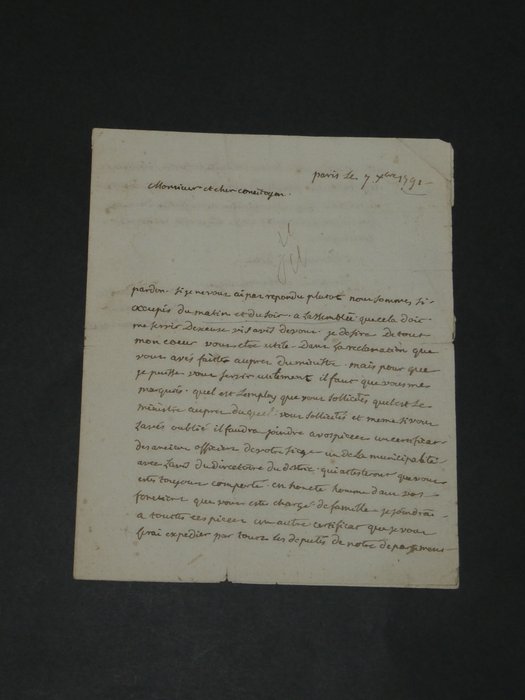 paris Le. 7. xbre 1791
Monsieur et cher concitoyen.
pardon. si je ne vous ai pas repondu plutot nous sommes si
occupés du matin et du soir. a Lassemblée que cela doit
me servir Dexcuse vis avis de vous. je desire De tout
mon coeur vous etre utile. Dans La reclamation que
vous avés faittes aupres du ministre. mais pour que
je puisse vous servir utilement il faut que vous me
marquiés. quel est Lemploy que vous sollicités quel est Le
ministre aupres duquel. vous sollicités et meme si vous
Lavés oublié il faudra joindre a vos pieces un certificat
des anciens officiers de votre siege un de La municipalité
avec Lavis du Directoire du district. qui attesteront que vous
etes toujour comporté. en honete homme dans vos
fonctions que vous etes chargé de famille. je joindrai
a touttes ces pieces un autre certificat que je vous
ferai expedier par tous Les deputés de notre departement